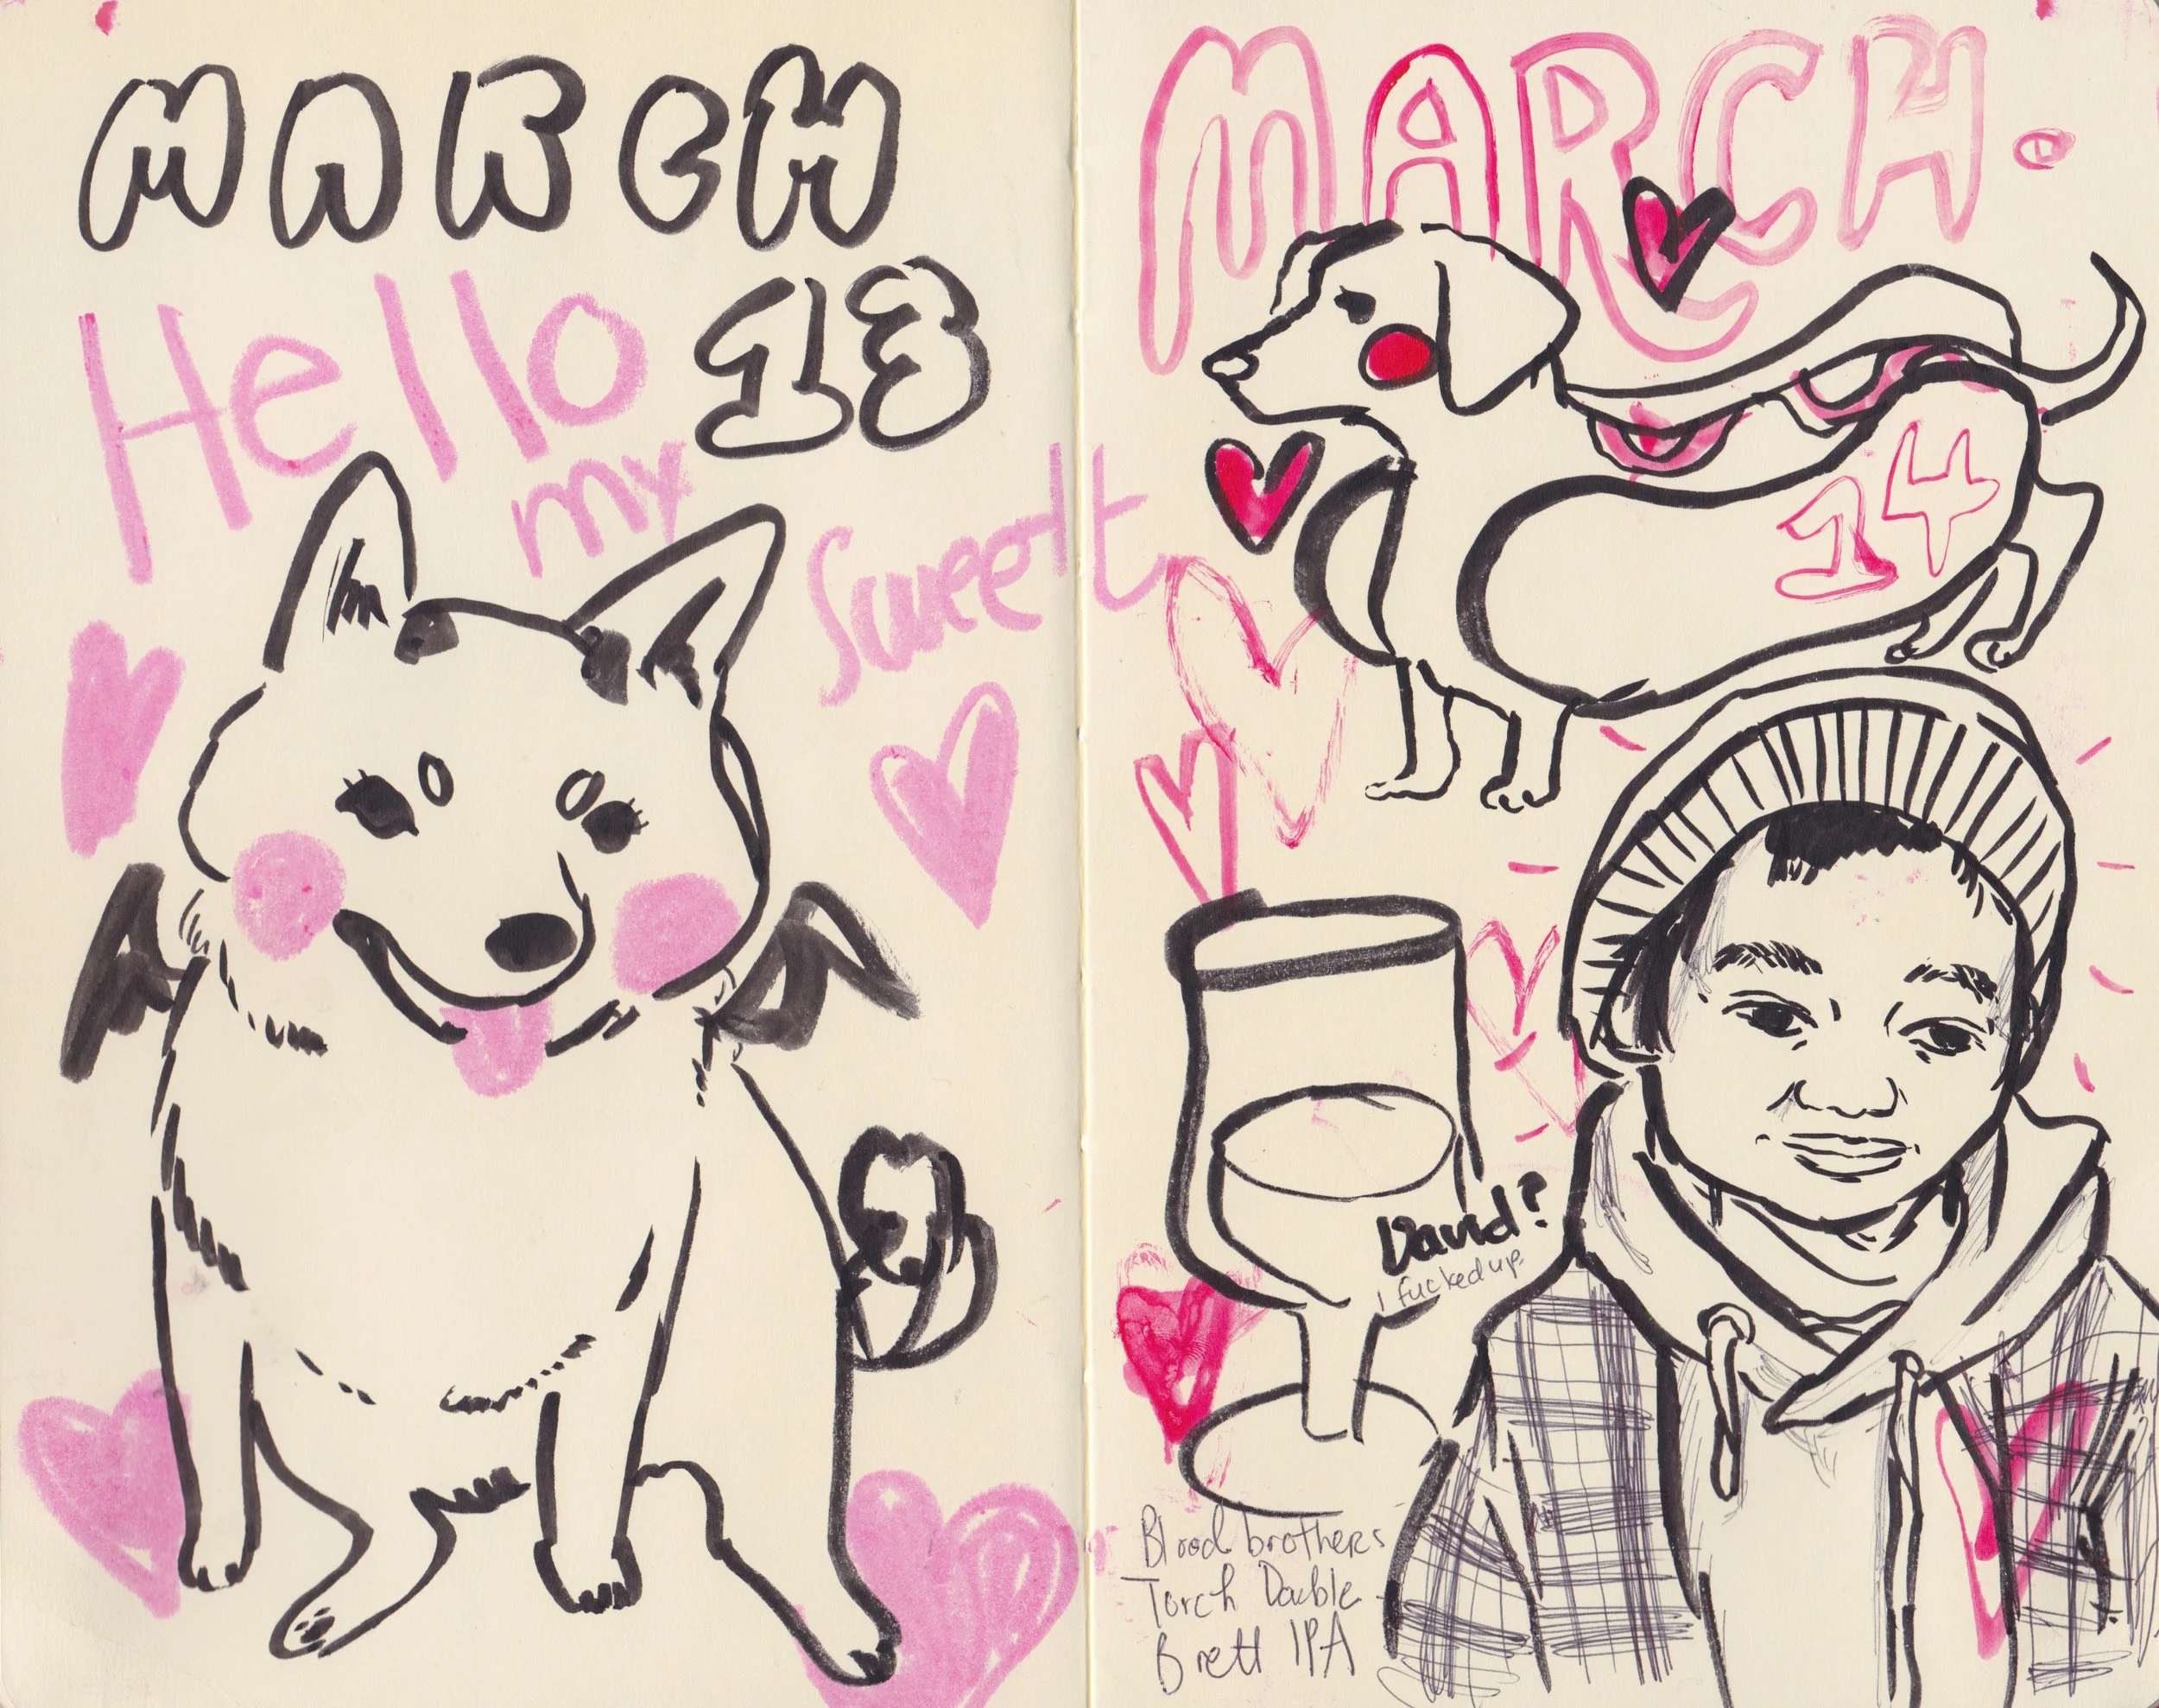 MARCH
18
Hello
my
Sweet
MARCH.
14
David?
I fucked up.
Blood brothers
Torch Double
Brett IPA